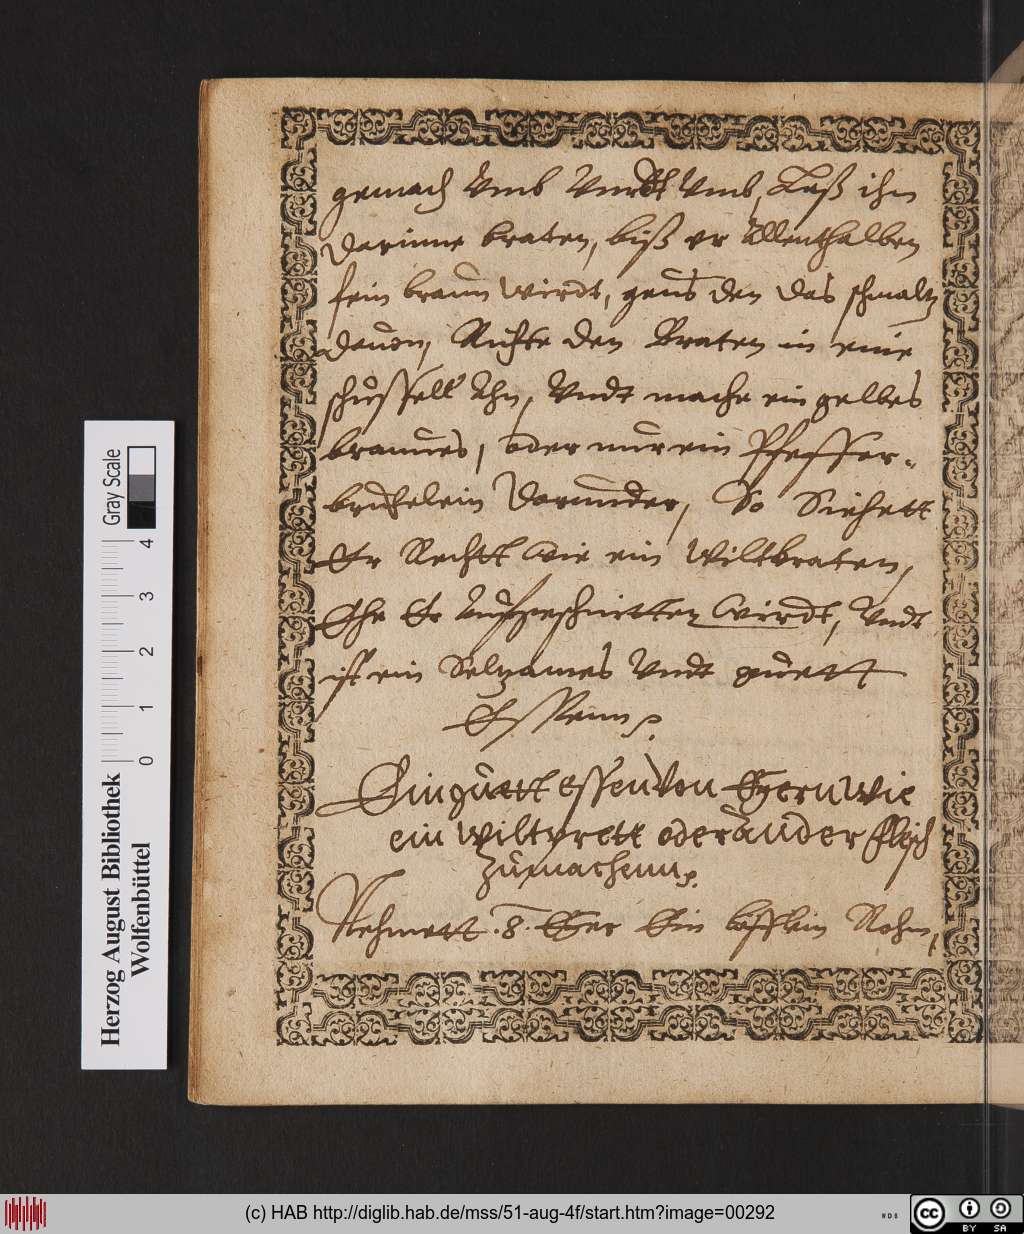 gemach Vmb Vnndt Vmb, Laß ihn
darinne braten, biß er Allenthalben
fein braun wirdt, geus den das schmaltz
dauon, Richte den Braten in eine
schüssell Ahn, Vndt mache ein gelbes
braunes, oder nur ein Pfeffer-
brühelein darunder, So Siehett
Er Rechtt wie ein Wiltbraten,
Ehe Er Aufgeschnitten wirdt, Vndt
ist ein Selzames Vndt guett
Essenn
Ein guett essen Von Eyern wie
ein wiltprett oder Ander fleisch
Zu machenn
Nehmett .8. Eyer Ein bißlein Rohm,
Herzog August Bibliothek
Wolfenbüttel
Gray Scale
0 1 2 3 4
(c) HAB http://diglib.hab.de/mss/51-aug-4f/start.htm?image=00292
WDB
cc BY SA